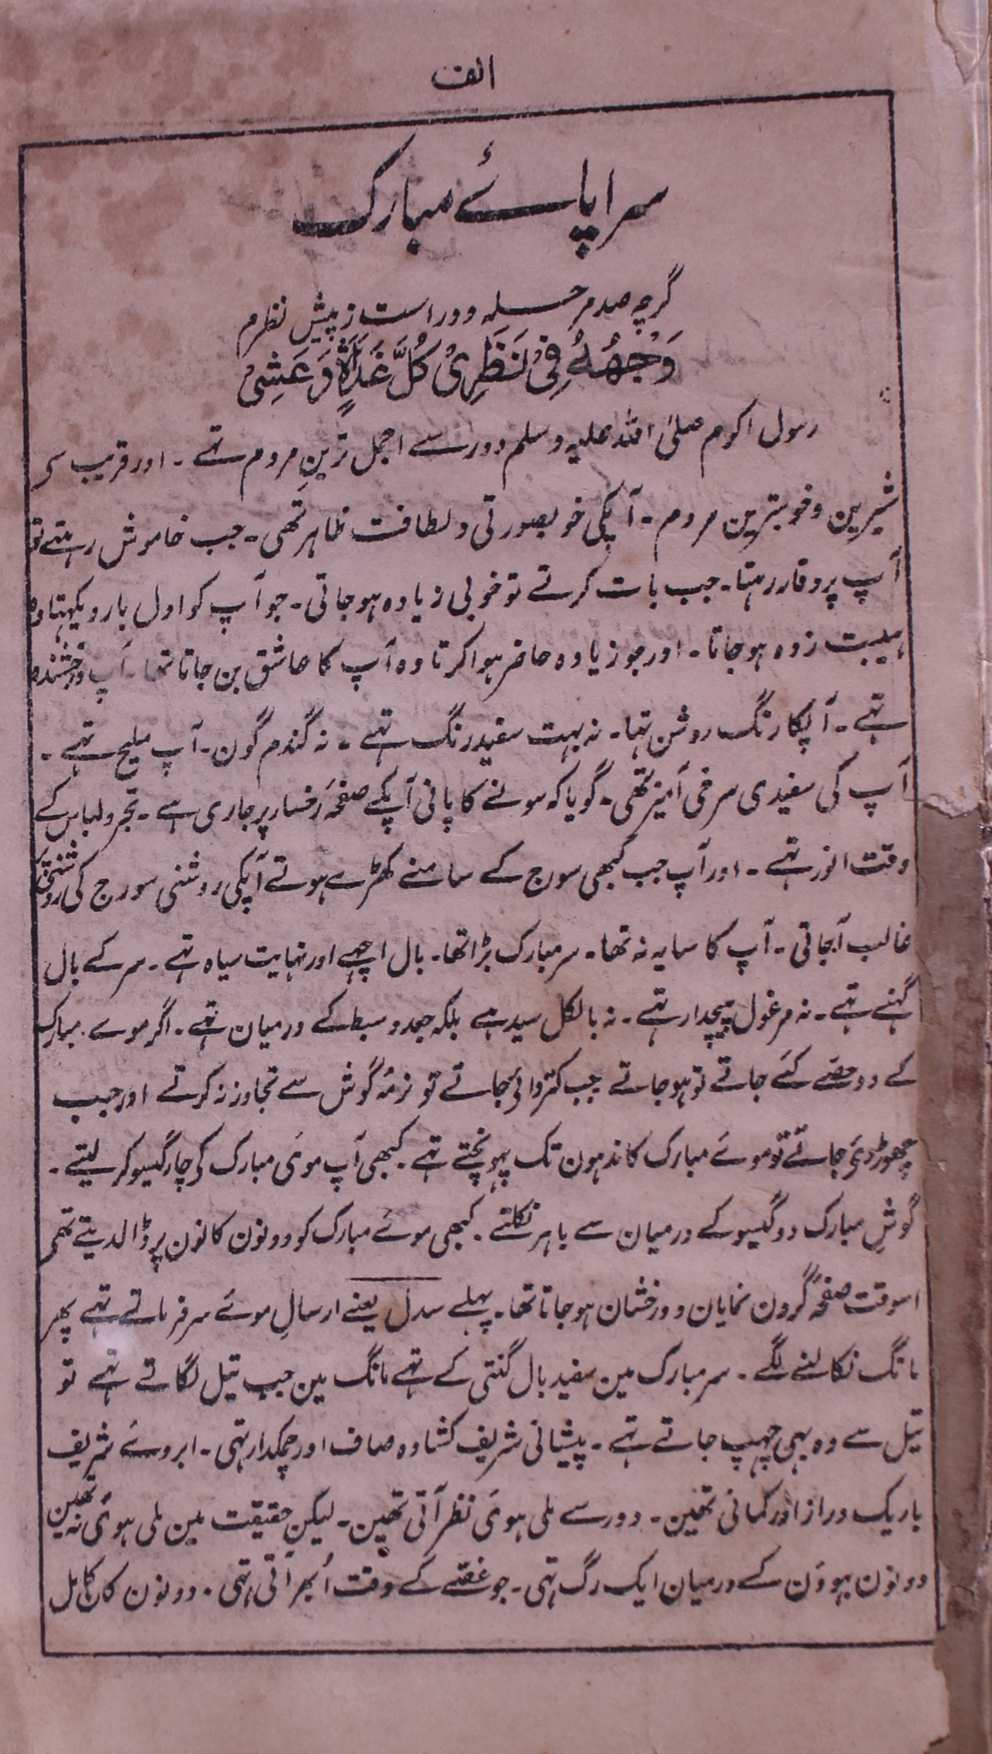 الف
سراپائے مبارک
گرچہ صد مرحلہ دور است ز پیش نظرم
وَجْهُهُ فِیْ نَظَرِیْ کُلَّ غَدَاةٍ وَّعَشِیْ
رسول اکرم صلی اللہ علیہ وسلم دور سے اجمل ترین مردم تہے ۔ اور قریب سے
شیرین و خوبترین مردم ۔ آپکی خوبصورتی و لطافت ظاہر تھی ۔ جب خاموش رہتے تو
آپ پر وقار رہتا ۔ جب بات کرتے تو خوبی زیادہ ہو جاتی ۔ جو آپ کو اول بار دیکہتا وہ
ہیبت زدہ ہو جاتا ۔ اور جو زیادہ حاضر ہوا کرتا وہ آپ کا عاشق بن جاتا تھا ۔ آپ درخشندہ
تہے ۔ آپکا رنگ روشن تہا ۔ نہ بہت سفید رنگ تہے ۔ نہ گندم گون ۔ آپ ملیح تہے ۔
آپ کی سفیدی سرخی آمیز تھی ۔ گویا کہ سونے کا پانی آپکے صفحۂ رخسار پر جاری ہے ۔ تجرد لباس کے
وقت انور تہے ۔ اور آپ جب کبھی سوج کے سامنے کھڑے ہوتے آپکی روشنی سورج کی روشنی پر
غالب آجاتی ۔ آپ کا سایہ نہ تھا ۔ سر مبارک بڑا تھا ۔ بال اچہے اور نہایت سیاہ تہے ۔ سر کے بال
گہنے تہے ۔ نہ مرغول پیچدار تہے ۔ نہ بالکل سیدہے بلکہ جعد و سبط کے درمیان تہے ۔ اگر موے مبارک
کے دو حصّے کئے جاتے تو ہو جاتے جب کتروائے جاتے تو نرمۂ گوش سے تجاوز نہ کرتے اور جب
چھوڑ دئے جاتے تو موئے مبارک کاندہون تک پہونچتے تہے ۔ کبھی آپ موئ مبارک کو چار گیسو کر لیتے ۔
گوش مبارک دو گیسو کے درمیان سے باہر نکلتے ۔ کبھی موئے مبارک کو دونون کانون پر ڈالدیتے تھے
اسوقت صفحۂ گردن نمایان و درخشان ہو جاتا تھا ۔ پہلے سدل یعنے ارسال موئے سر فرماتے تہے پھر
مانگ نکالنے لگے ۔ سر مبارک مین سفید بال گنتی کے تہے مانگ مین جب تیل لگاتے تہے تو
تیل سے وہ بہی چہپ جاتے تہے ۔ پیشانی شریف کشادہ صاف اور چمکدار تہی ۔ ابروے شریف
باریک دراز اور کمانی تھین ۔ دور سے ملی ہوئ نظر آتی تھین ۔ لیکن حقیقت مین ملی ہوئ نہ تھین
دونون بہوؤن کے درمیان ایک رگ تہی ۔ جو غصّے کے وقت اُبھر آتی تہی ۔ دونون کان کامل